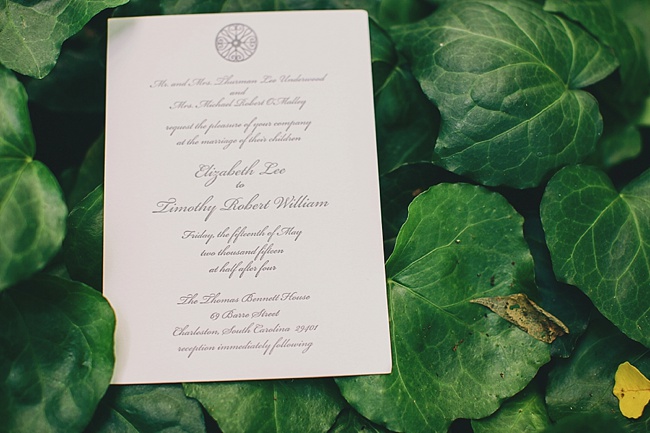 Mr. and Mrs. Thurman Lee Underwood
and
Mrs. Michael Robert O'Malley
request the pleasure of your company
at the marriage of their children
Elizabeth Lee
to
Timothy Robert William
Friday, the fifteenth of May
two thousand fifteen
at half after four
The Thomas Bennett House
69 Barre Street
Charleston, South Carolina 29401
reception immediately following